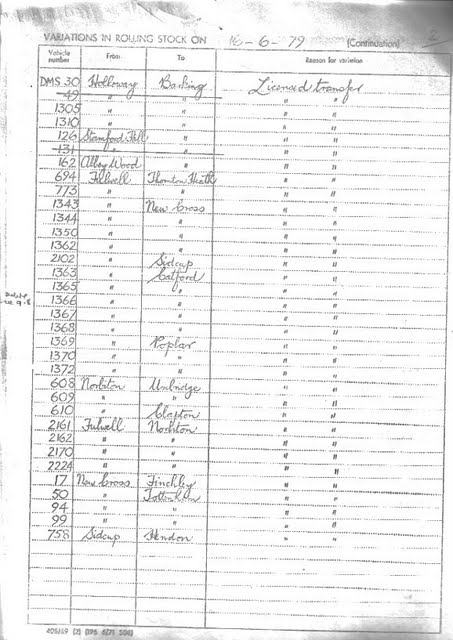 VARIATIONS IN ROLLING STOCK ON 16-6-79 (Continuation) 2
Vehicle number From To Reason for variation
DMS 30 Holloway Barking Licensed transfer
49 " " " "
1305 " " " "
1310 " " " "
126 Stamford Hill " " "
131 " " " "
162 Abbey Wood " " "
694 Fulwell Thornton Heath " "
773 " " " "
1343 " New Cross " "
1344 " " " "
1350 " " " "
1362 " " " "
2102 " Sidcup " "
1363 " Catford " "
1365 " " " "
1366 " " " "
1367 " " " "
1368 " " " "
1369 " Poplar " "
1370 " " " "
1372 " " " "
608 Norbiton Uxbridge " "
609 " " " "
610 " Clapton " "
2161 Fulwell Norbiton " "
2162 " " " "
2170 " " " "
2224 " " " "
17 New Cross Finchley " "
50 " Tottenham " "
94 " " " "
99 " " " "
758 Sidcup Hendon " "